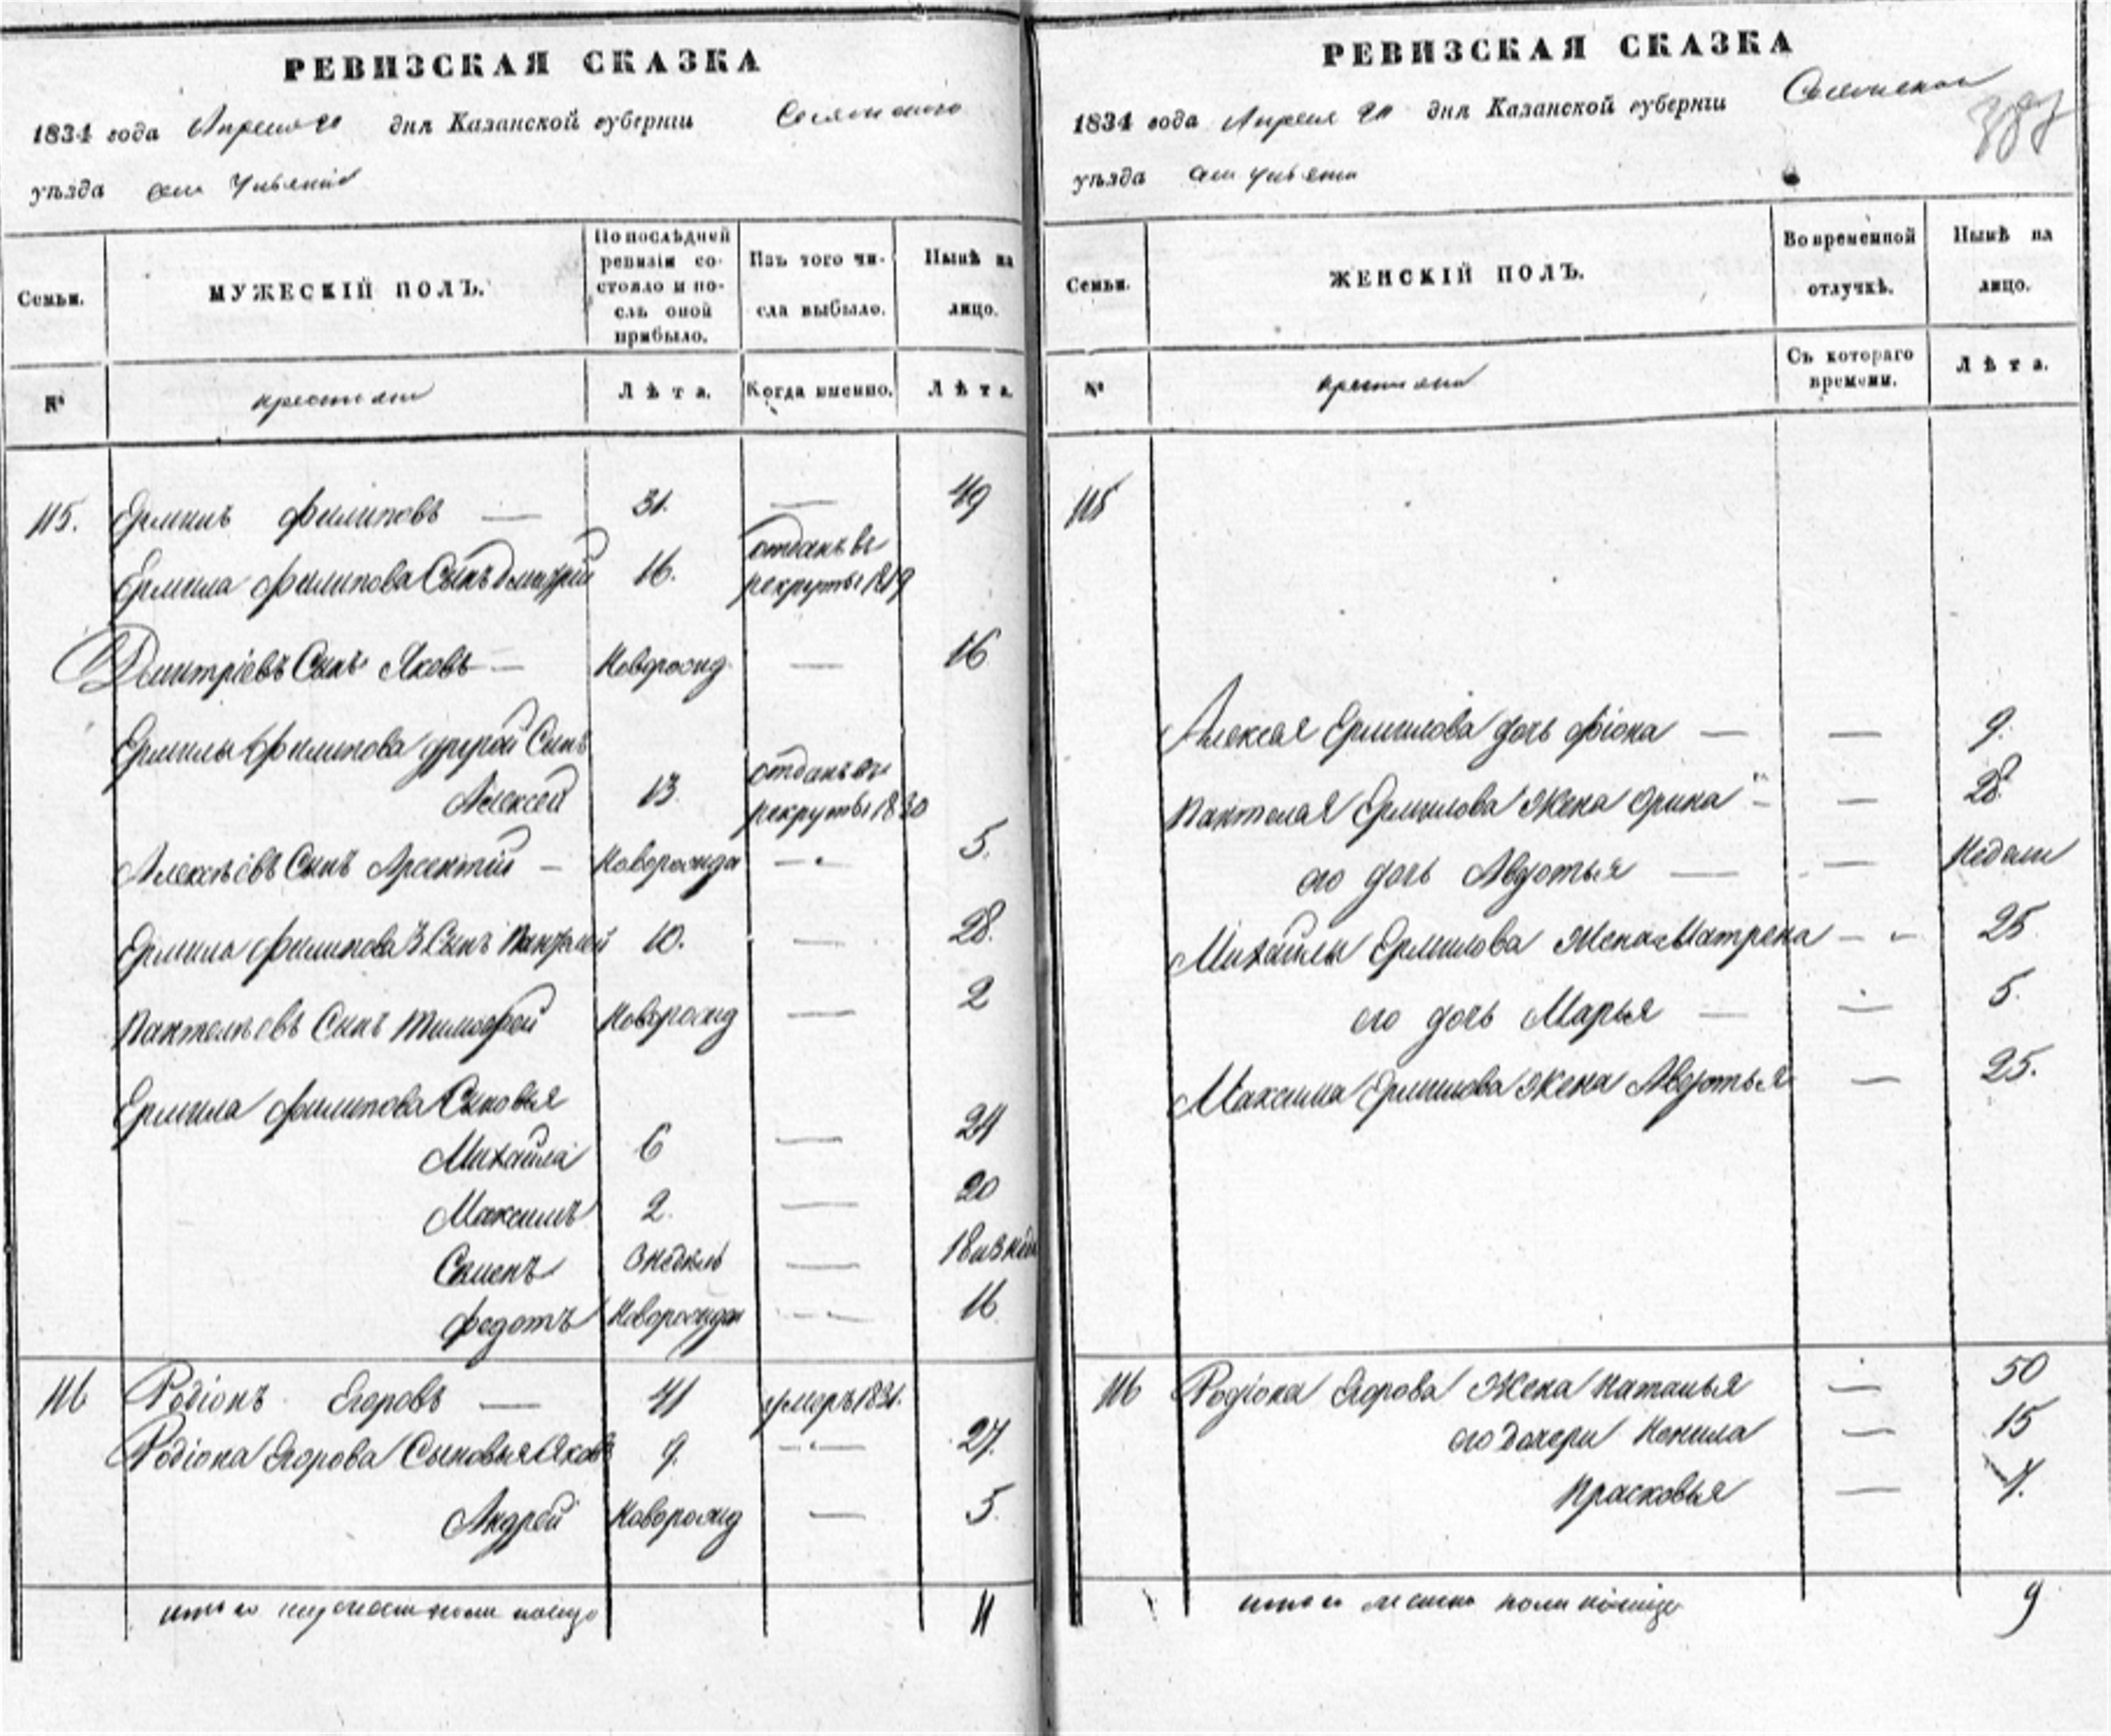 РЕВИЗСКАЯ СКАЗКА
1834 года Апреля 20 дня Казанской губернiи
уѣзда
Семьи.
МУЖЕСКІЙ ПОЛЪ.
По послѣдней ревизіи состояло и послѣ оной прибыло.
Изъ того числа выбыло.
Нынѣ на лицо.
№
крестьяне
Лѣта.
Когда именно.
Лѣта.
115. Ермилъ Филиповъ — 31. — 49
Ермила Филипова Сынъ Дмитрій 16. отданъ въ рекруты 1819
Дмитріевъ Сынъ Яковъ — Новорожд — 16
Ермилы Филипова другой Сынъ
Алексей 13. отданъ въ рекруты 1830
Алексѣевъ Сынъ Арсентій — Новорожден — 5.
Ермила Филипова 3 Сынъ Пантелей 10. — 28.
Пантелѣевъ Сынъ Тимофей Новорожд — 2
Ермила Филипова Сыновья
Михайла 6 — 24
Максимъ 2. — 20
Семенъ 3 недѣль — 18 и 3 нед
Федотъ Новорожден — 16
116 Родіонъ Егоровъ — 41 умеръ 1831.
Родіона Егорова Сыновья Яковъ 9. — 27.
Андрей Новорожд — 5.
итого мужеска пола налицо 11
РЕВИЗСКАЯ СКАЗКА
387
1834 года Апреля 20 дня Казанской губернiи
уѣзда
Семьи.
ЖЕНСКІЙ ПОЛЪ.
Во временной отлучкѣ.
Нынѣ на лицо.
№
крестьяне
Съ котораго времени.
Лѣта.
115
Алексея Ермилова дочь Фіона — — 9.
Пантелея Ермилова Жена Орина — — 28.
его дочь Авдотья — — Недели
Михайлы Ермилова Жена Матрена — — 25
его дочь Марья — — 5.
Максима Ермилова Жена Авдотья — 25.
116 Родіона Егорова Жена Наталья — 50
его Дочери Ненила — 15
Прасковья — 4.
итого женска пола налицо 9